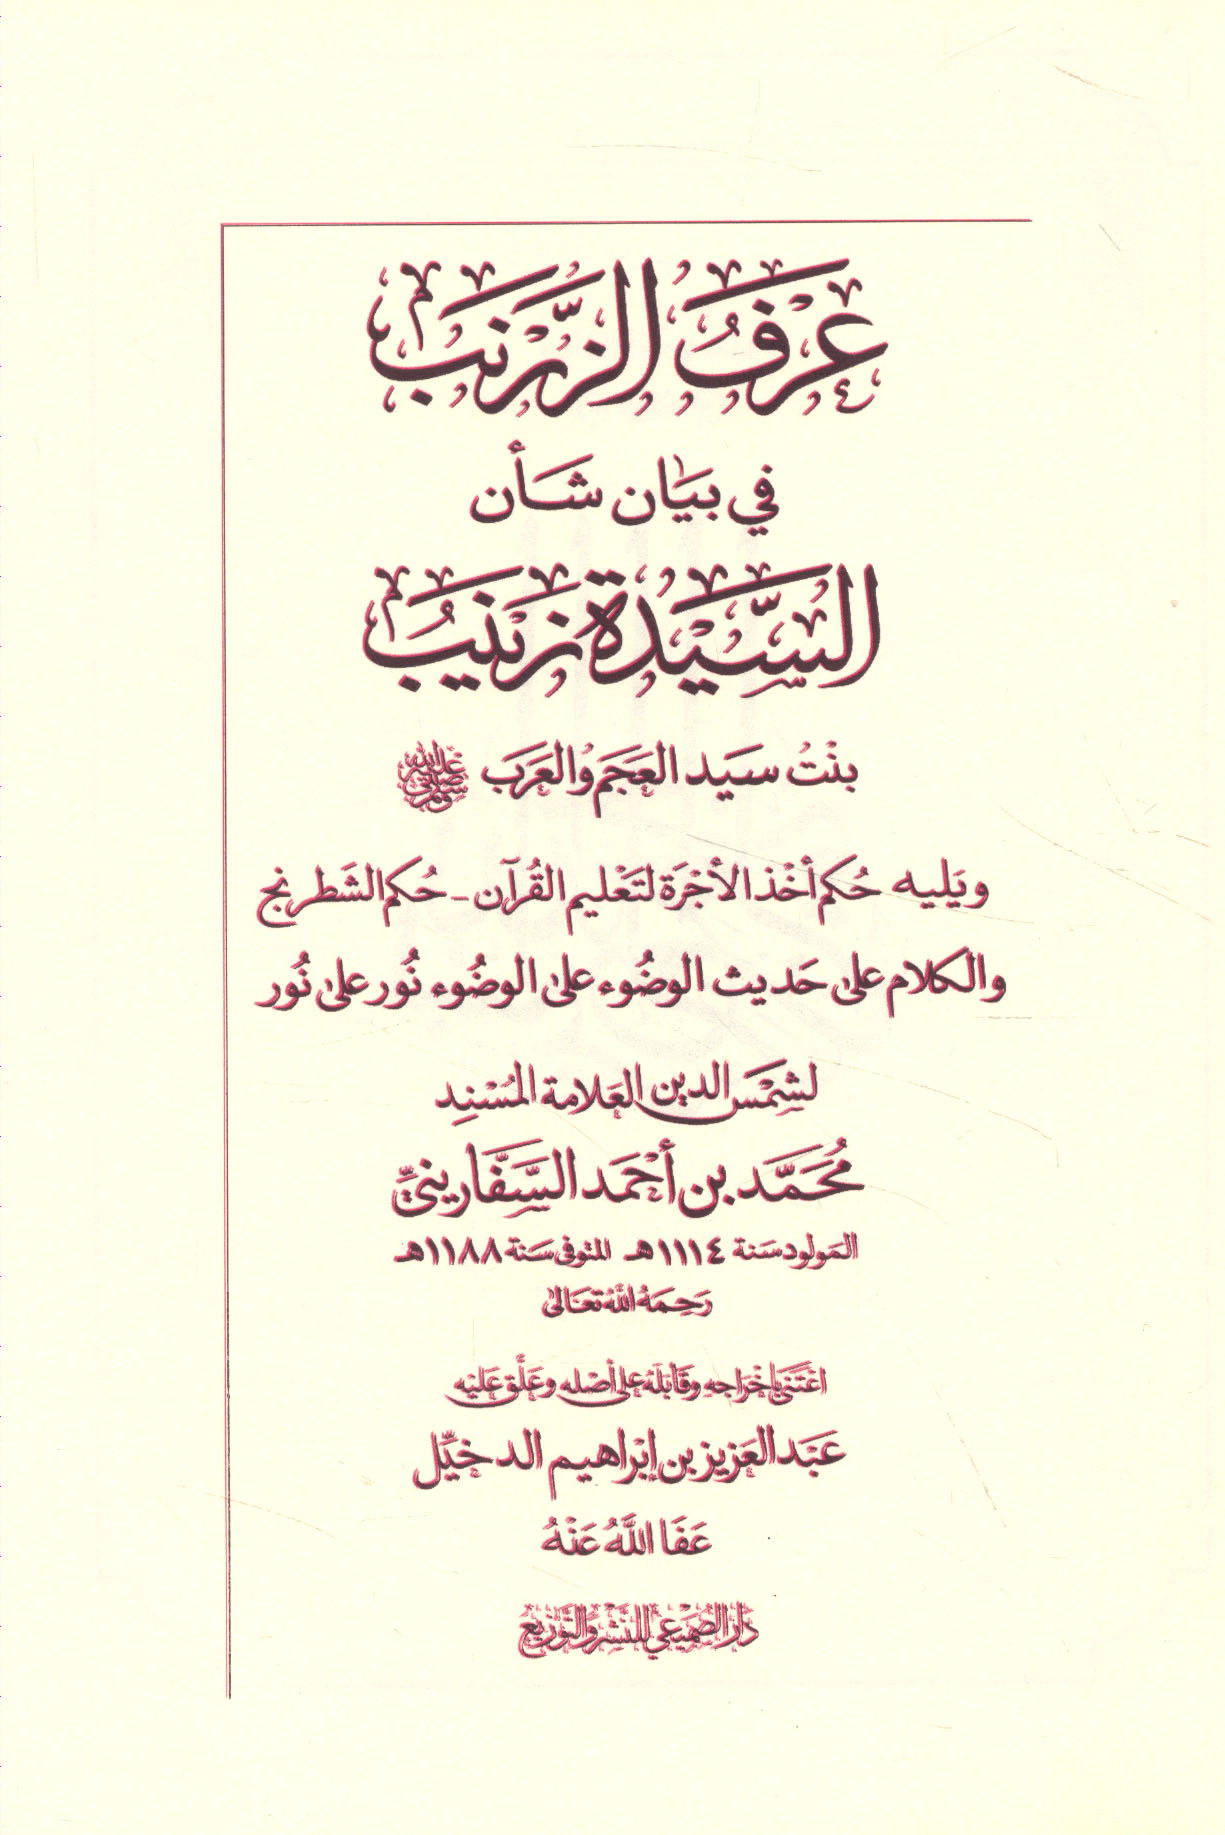 عَرفُ الزَّرنَب
في بيَان شَأن
السَّيِّدَة زَينَبُ
بنْتُ سيَد العَجَم وُالعَرَبَ ﷺ
ويَليه حُكم أخْذ الأجْرَة لتَعْليم القُرآن - حُكم الشَطرنج
والكلام على حَديث الوضُوء على الوضُوء نُور على نُور
لشِمْسَ الدين العَلامة المُسْنِد
مُحَمَّد بن أحْمَد السَّفَّارينيِّ
المَولود سَنة ١١١٤هـ المتوفى سَنة ١١٨٨هـ
رَحِمَهُ اللَّهُ تعَالى
اعْتَنَى بإخْرَاجِهِ وقَابَلَهُ على أصْلهِ وعَلَّق عَليْه
عَبَد العَزيز بن إبْراهيم الدخيِّل
عَفَا اللَّهُ عَنْهُ
دَارُ الصُّمَيْعي للنَشْر وَالتَّوْزيْع